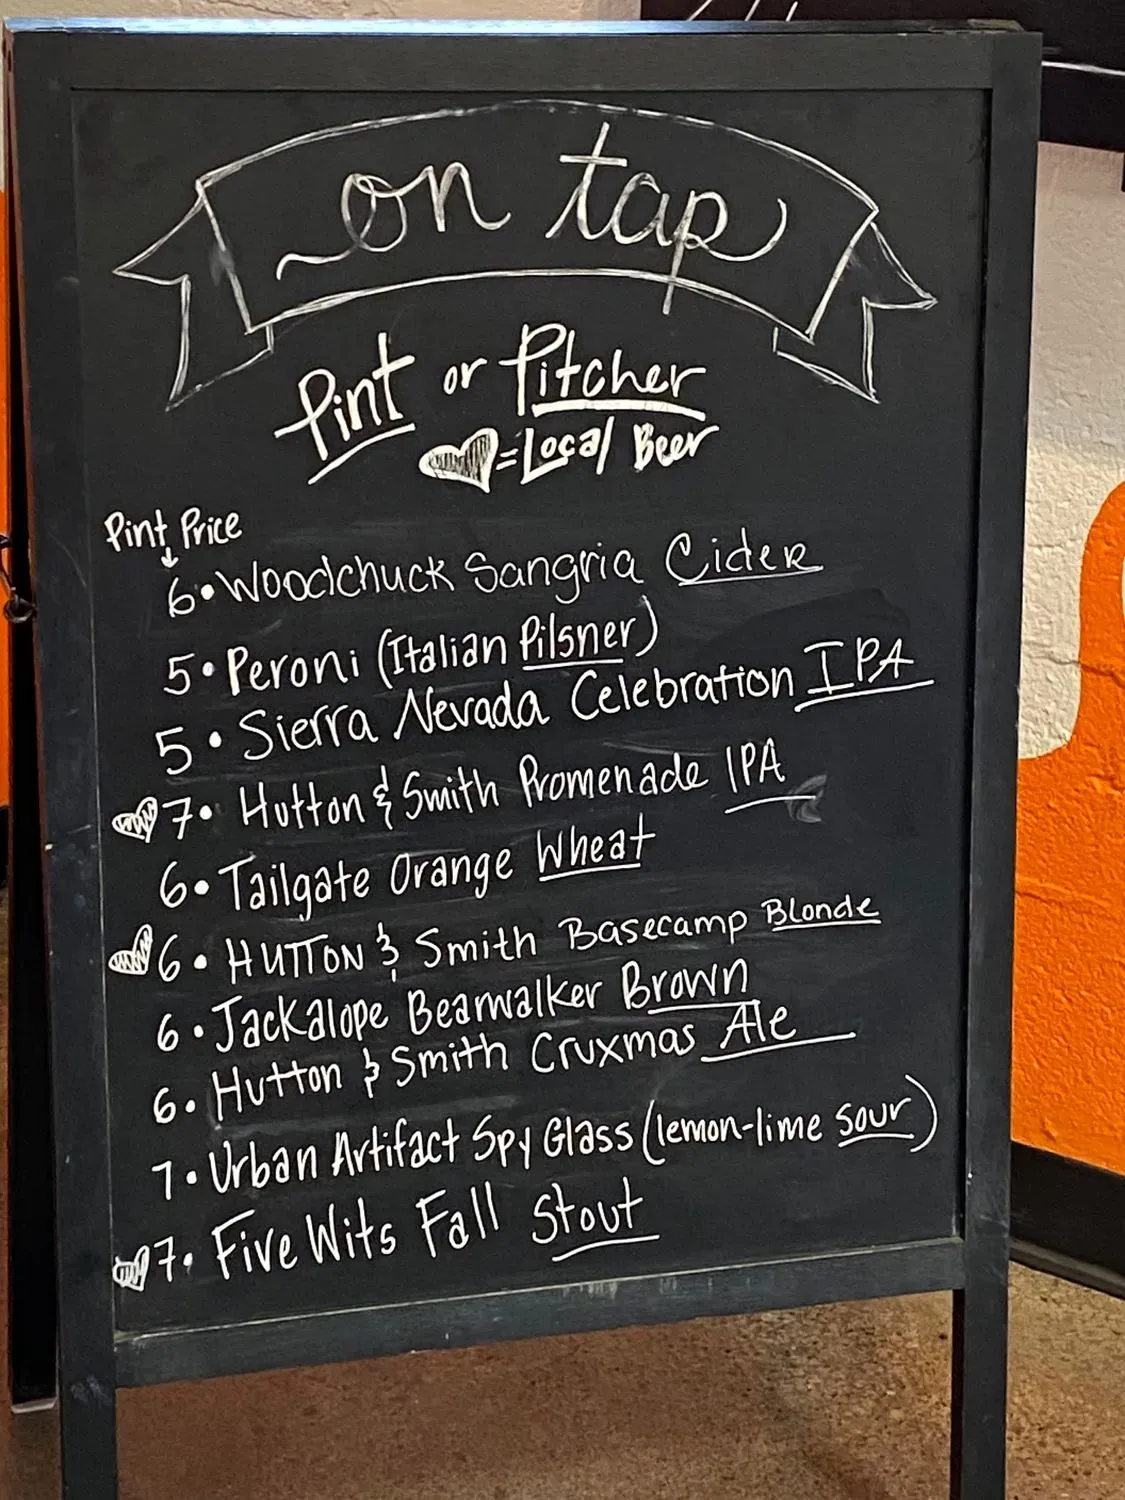 on tap
Pint or Pitcher
= Local Beer
Pint Price
6 • Woodchuck Sangria Cider
5 • Peroni (Italian Pilsner)
5 • Sierra Nevada Celebration IPA
7 • Hutton & Smith Promenade IPA
6 • Tailgate Orange Wheat
6 • HUTTON & Smith Basecamp Blonde
6 • Jackalope Bearwalker Brown
6 • Hutton & Smith Cruxmas Ale
7 • Urban Artifact Spy Glass (lemon-lime sour)
7 • Five Wits Fall Stout